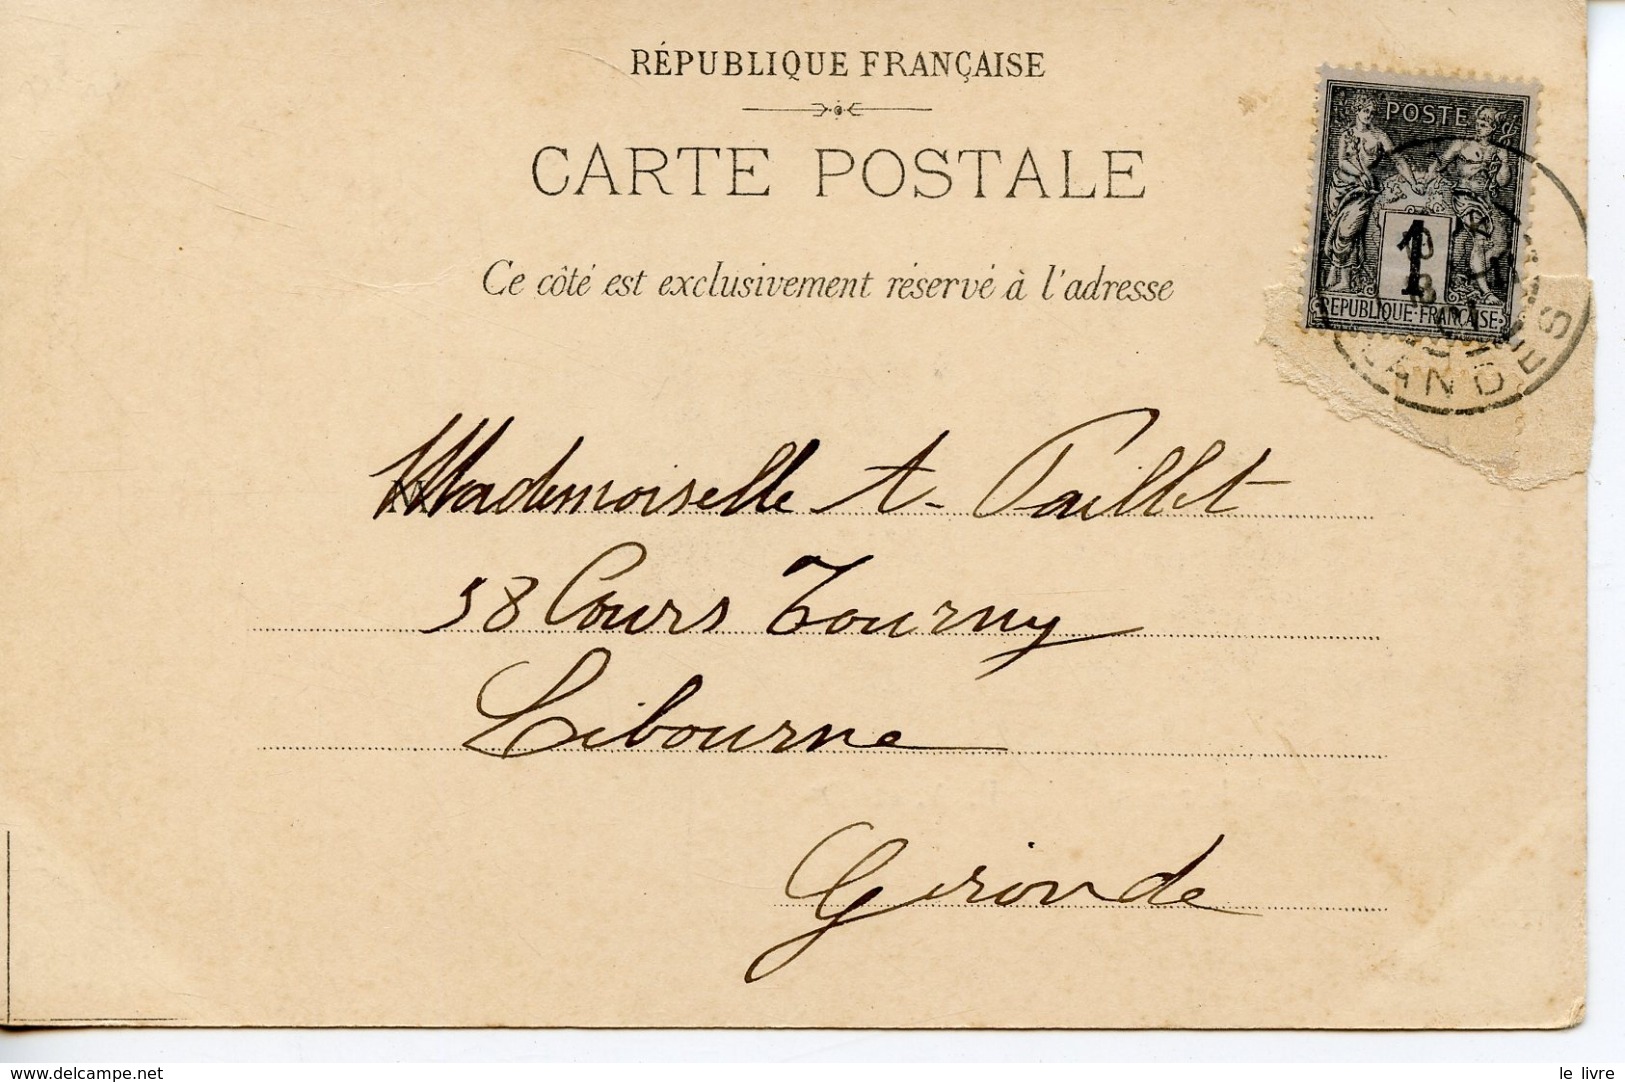 RÉPUBLIQUE FRANÇAISE
CARTE POSTALE
Ce côté est exclusivement réservé à l'adresse
POSTE
1
REPUBLIQUE·FRANÇAISE
LANDES
Mademoiselle A. Paillet
58 Cours Tourny
Libourne
Gironde
www.delcampe.net
le livre